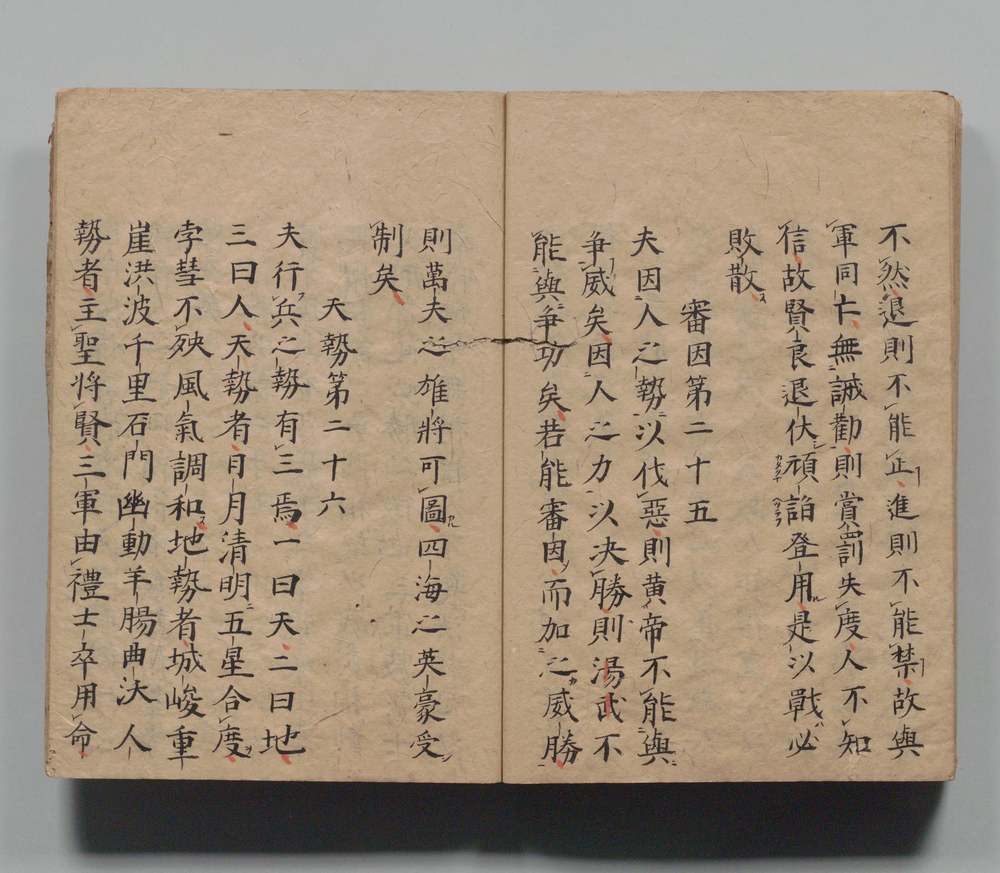 不然退則不能正進則不能禁故與
軍同亡無誡勸則賞罰失度人不知
信故賢良退伏頑諂登用是以戰必
敗散
審因第二十五
夫因人之勢以伐惡則黄帝不能與
争威矣因人之力以决勝則湯武不
能與争功矣若能審因而加之威勝
則萬夫之雄將可圖四海之英豪受
制矣
天勢第二十六
夫行兵之勢有三焉一曰天二曰地
三曰人天勢者日月清明五星合度
孛彗不殃風氣調和地勢者城峻重
崖洪波千里石門幽動羊腸曲沃人
勢者主聖將賢三軍由禮士卒用命